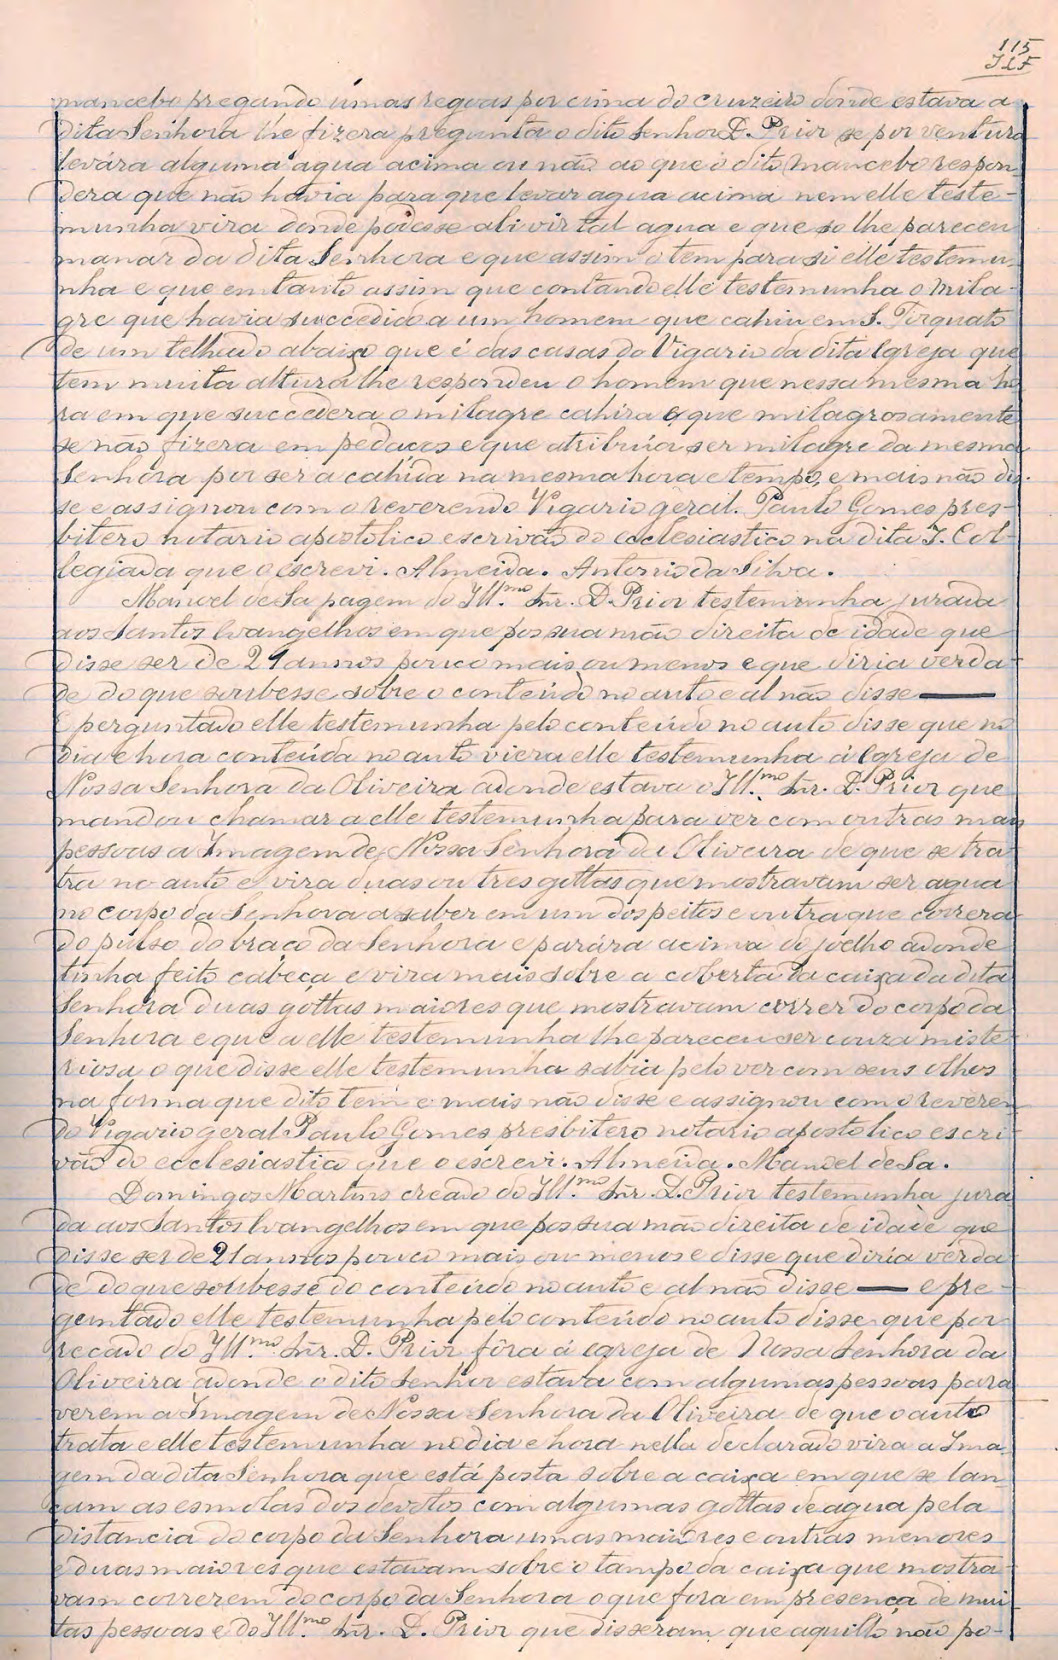 115
mancebo pregando umas regoas por cima do cruzeiro donde estava a
dita Senhora lhe fizera pregunta o dito Senhor D. Prior se por ventura
levára alguma agua acima ou não ao que o dito mancebo respon-
dera que não havia para que levar agua acima nem elle teste-
munha vira donde podesse ali vir tal agua e que so lhe pareceu
manar da dita Senhora e que assim o tem para si elle testemu-
nha e que em tanto assim que contando elle testemunha o mila-
gre que havia succedido a um homem que cahiu em S. Torquato
de um telhado abaixo que é das casas do Vigario da dita Egreja que
tem muita altura lhe respondeu o homem que nessa mesma ho
ra em que succedera o milagre cahira e que milagrosamente
se não fizera em pedaços e que atribuia ser milagre da mesma
Senhora por ser a cahida na mesma hora e tempo, e mais não dis-
se e assignou com o reverendo Vigario geral. Paulo Gomes pres-
bitero notario apostolico escrivão do ecclesiastico na dita I. Col-
legiada que o escrevi. Almeida. Antonio da Silva.
Manoel de Sa pagem do Ill.mo Snr. D. Prior testemunha jurada
aos Santos Evangelhos em que pos sua mão direita de idade que
disse ser de 21 annos pouco mais ou menos e que diria verda-
de do que soubesse sobre o conteúdo no auto e al não disse —
E perguntado elle testemunha pelo conteúdo no auto disse que no
dia e hora conteúda no auto viera elle testemunha á Egreja de
Nossa Senhora da Oliveira adonde estava o Ill.mo Snr. D. Prior que
mandou chamar a elle testemunha para ver com outras mais
pessoas a Imagem de Nossa Senhora da Oliveira de que se tra
tra no auto e vira duas ou tres gottas que mostravam ser agua
no corpo da Senhora a saber em um dos peitos e outra que correra
do pulso do braço da Senhora e parára acima do joelho adonde
tinha feito cabeça e vira mais sobre a coberta da caixa da dita
Senhora duas gottas maiores que mostravam correr do corpo da
Senhora e que a elle testemunha lhe pareceu ser couza miste-
riosa o que disse elle testemunha sabia pelo ver com seus olhos
na forma que dito tem e mais não disse e assignou com o reveren-
do Vigario geral Paulo Gomes presbitero notario apostolico escri-
vão do ecclesiastia que o escrevi. Almeida. Manoel de Sa.
Domingos Martins creado do Ill.mo Snr. D. Prior testemunha jura
da aos Santos Evangelhos em que pos sua mão direita de idade que
disse ser de 21 annos pouco mais ou menos e disse que diria verda-
de do que soubesse do conteúdo no auto e al não disse — e pre-
guntado elle testemunha pelo conteúdo no auto disse que por
recado do Ill.mo Snr. D. Prior fôra á egreja de Nossa Senhora da
Oliveira adonde o dito Senhor estava com algumas pessoas para
verem a Imagem de Nossa Senhora da Oliveira de que o auto
trata e elle testemunha no dia e hora nella declarado vira a Ima
gem da dita Senhora que está posta sobre a caixa em que se lan-
çam as esmolas dos devotos com algumas gottas de agua pela
distancia do corpo da Senhora umas maiores e outras menores
e duas maiores que estavam sobre o tampo da caixa que mostra-
vam correrem do corpo da Senhora o que fora em presença de mui-
tas pessoas e do Ill.mo Snr. D. Prior que disseram que aquillo não po-